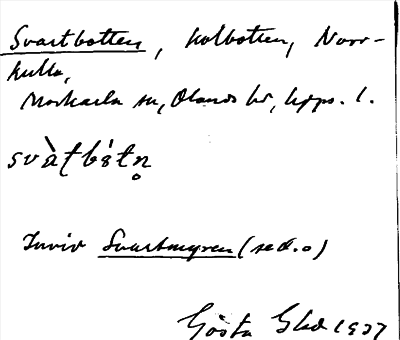 Svartbotten, Kolbotten, Norr-
kulla,
Morkarla sn, Olands hd, Upps. l.
svàṭbótn̥
Invid Svartmyren (se d.o)
Gösta 1937